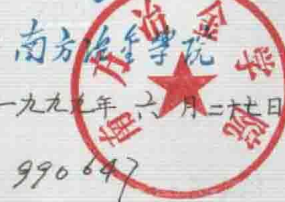 南方冶金学院
一九九九年 六 月二十七日
990647
南方冶金学院